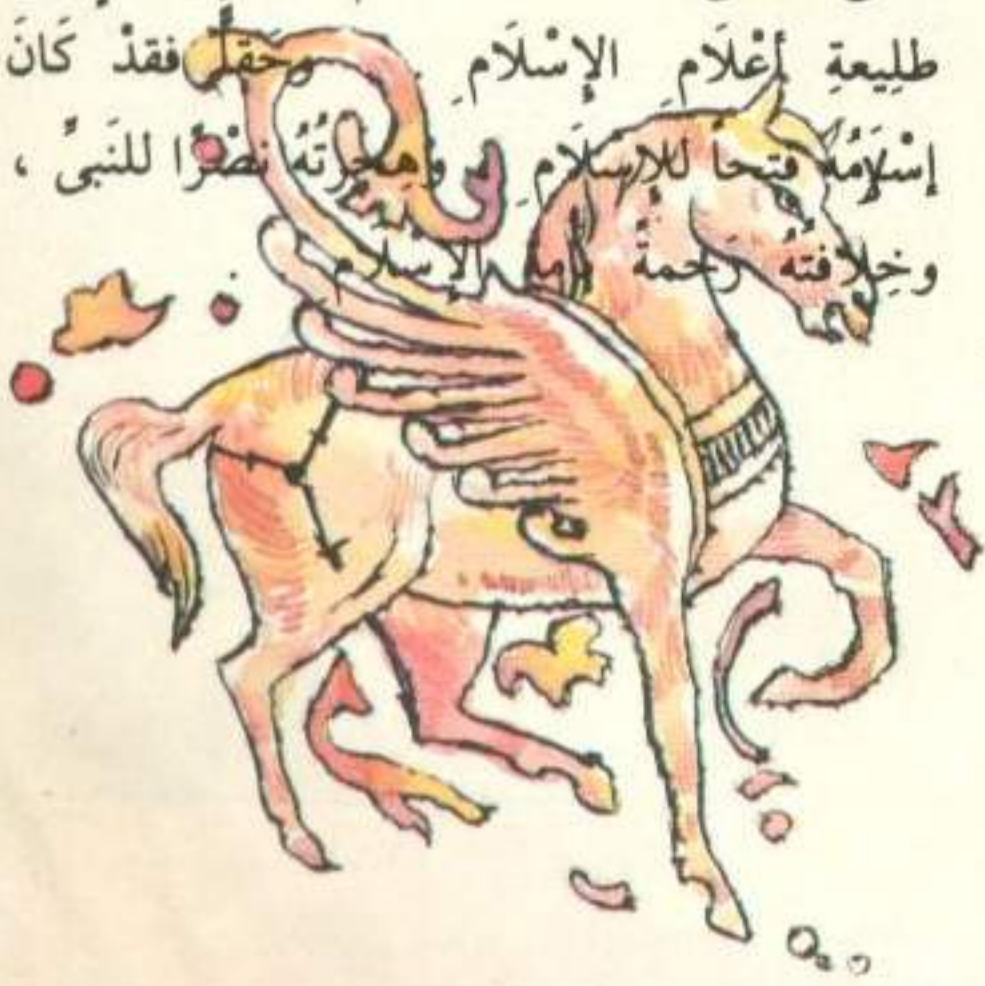 طلِيعةِ أعْلَامِ الإسْلَامِ . وحَقًّا فقدْ كَانَ
إسْلَامُهُ فتحاً للإسْلَامِ ، وهِجْرَتُهُ نصْرًا للنَبىِّ ،
وخِلَافتُهُ رَحمةً الإسْلَامِ